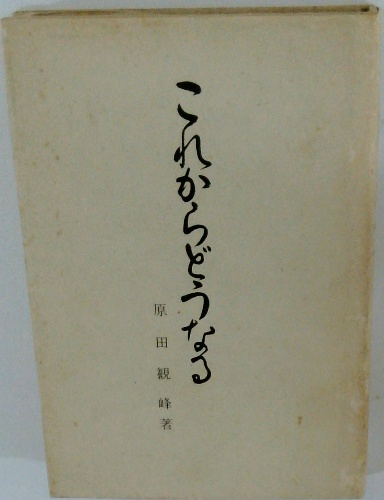 これからどうなる
原田観峰著